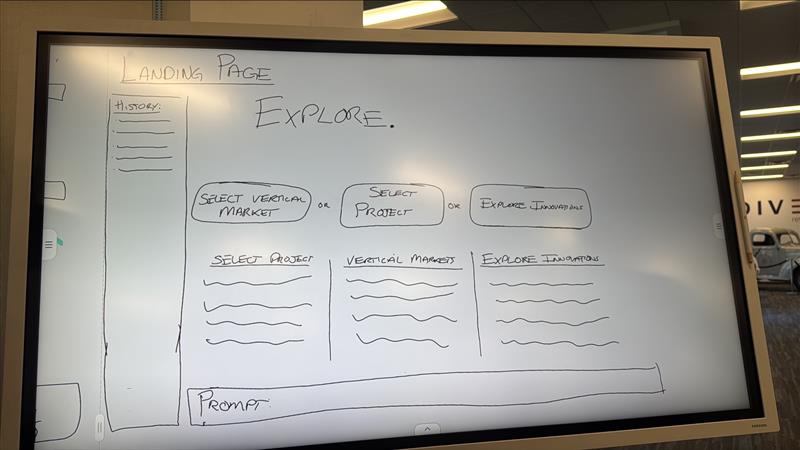 LANDING PAGE
HISTORY:
EXPLORE.
SELECT VERTICAL
MARKET
OR
SELECT
PROJECT
OR
EXPLORE INNOVATIONS
SELECT PROJECT
VERTICAL MARKETS
EXPLORE INNOVATIONS
PROMPT:
DIVE
SAMSUNG